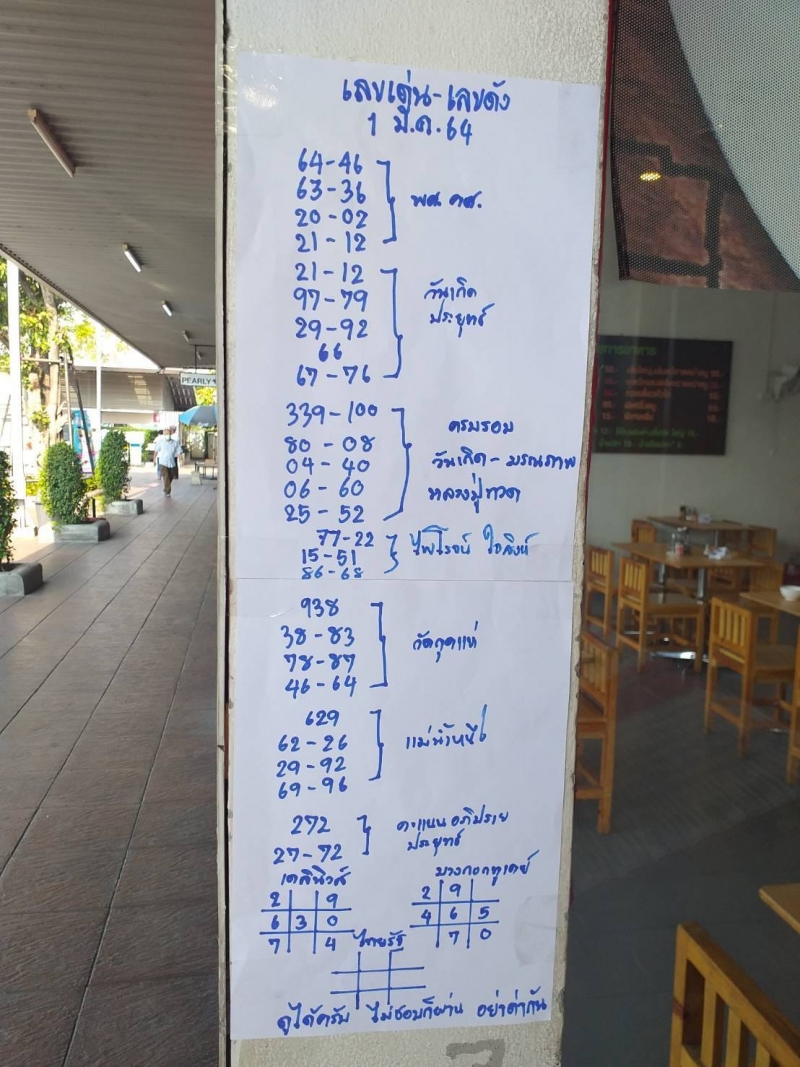 เลขเด่น-เลขดัง
1 มี.ค. 64
64-46
63-36
20-02
21-12
พศ. คศ.
21-12
97-79
29-92
66
67-76
วันเกิด
ประยุทธ์
339-100
80-08
04-40
06-60
25-52
ครบรอบ
วันเกิด-มรณภาพ
หลวงปู่ทวด
77-22
15-51
86-68
ไพโรจน์ ใจสิงห์
938
38-83
78-87
46-64
วัดกุดแห่
629
62-26
29-92
69-96
แม่น้ำหนึ่ง
272
27-72
คะแนนอภิปราย
ประยุทธ์
เดลินิวส์
2 9
6 3 0
7 4
บางกอกทูเดย์
2 9
4 6 5
7 0
ไทยรัฐ
ดูได้ครับ ไม่ชอบก็ผ่าน อย่าด่ากัน
PEARLY